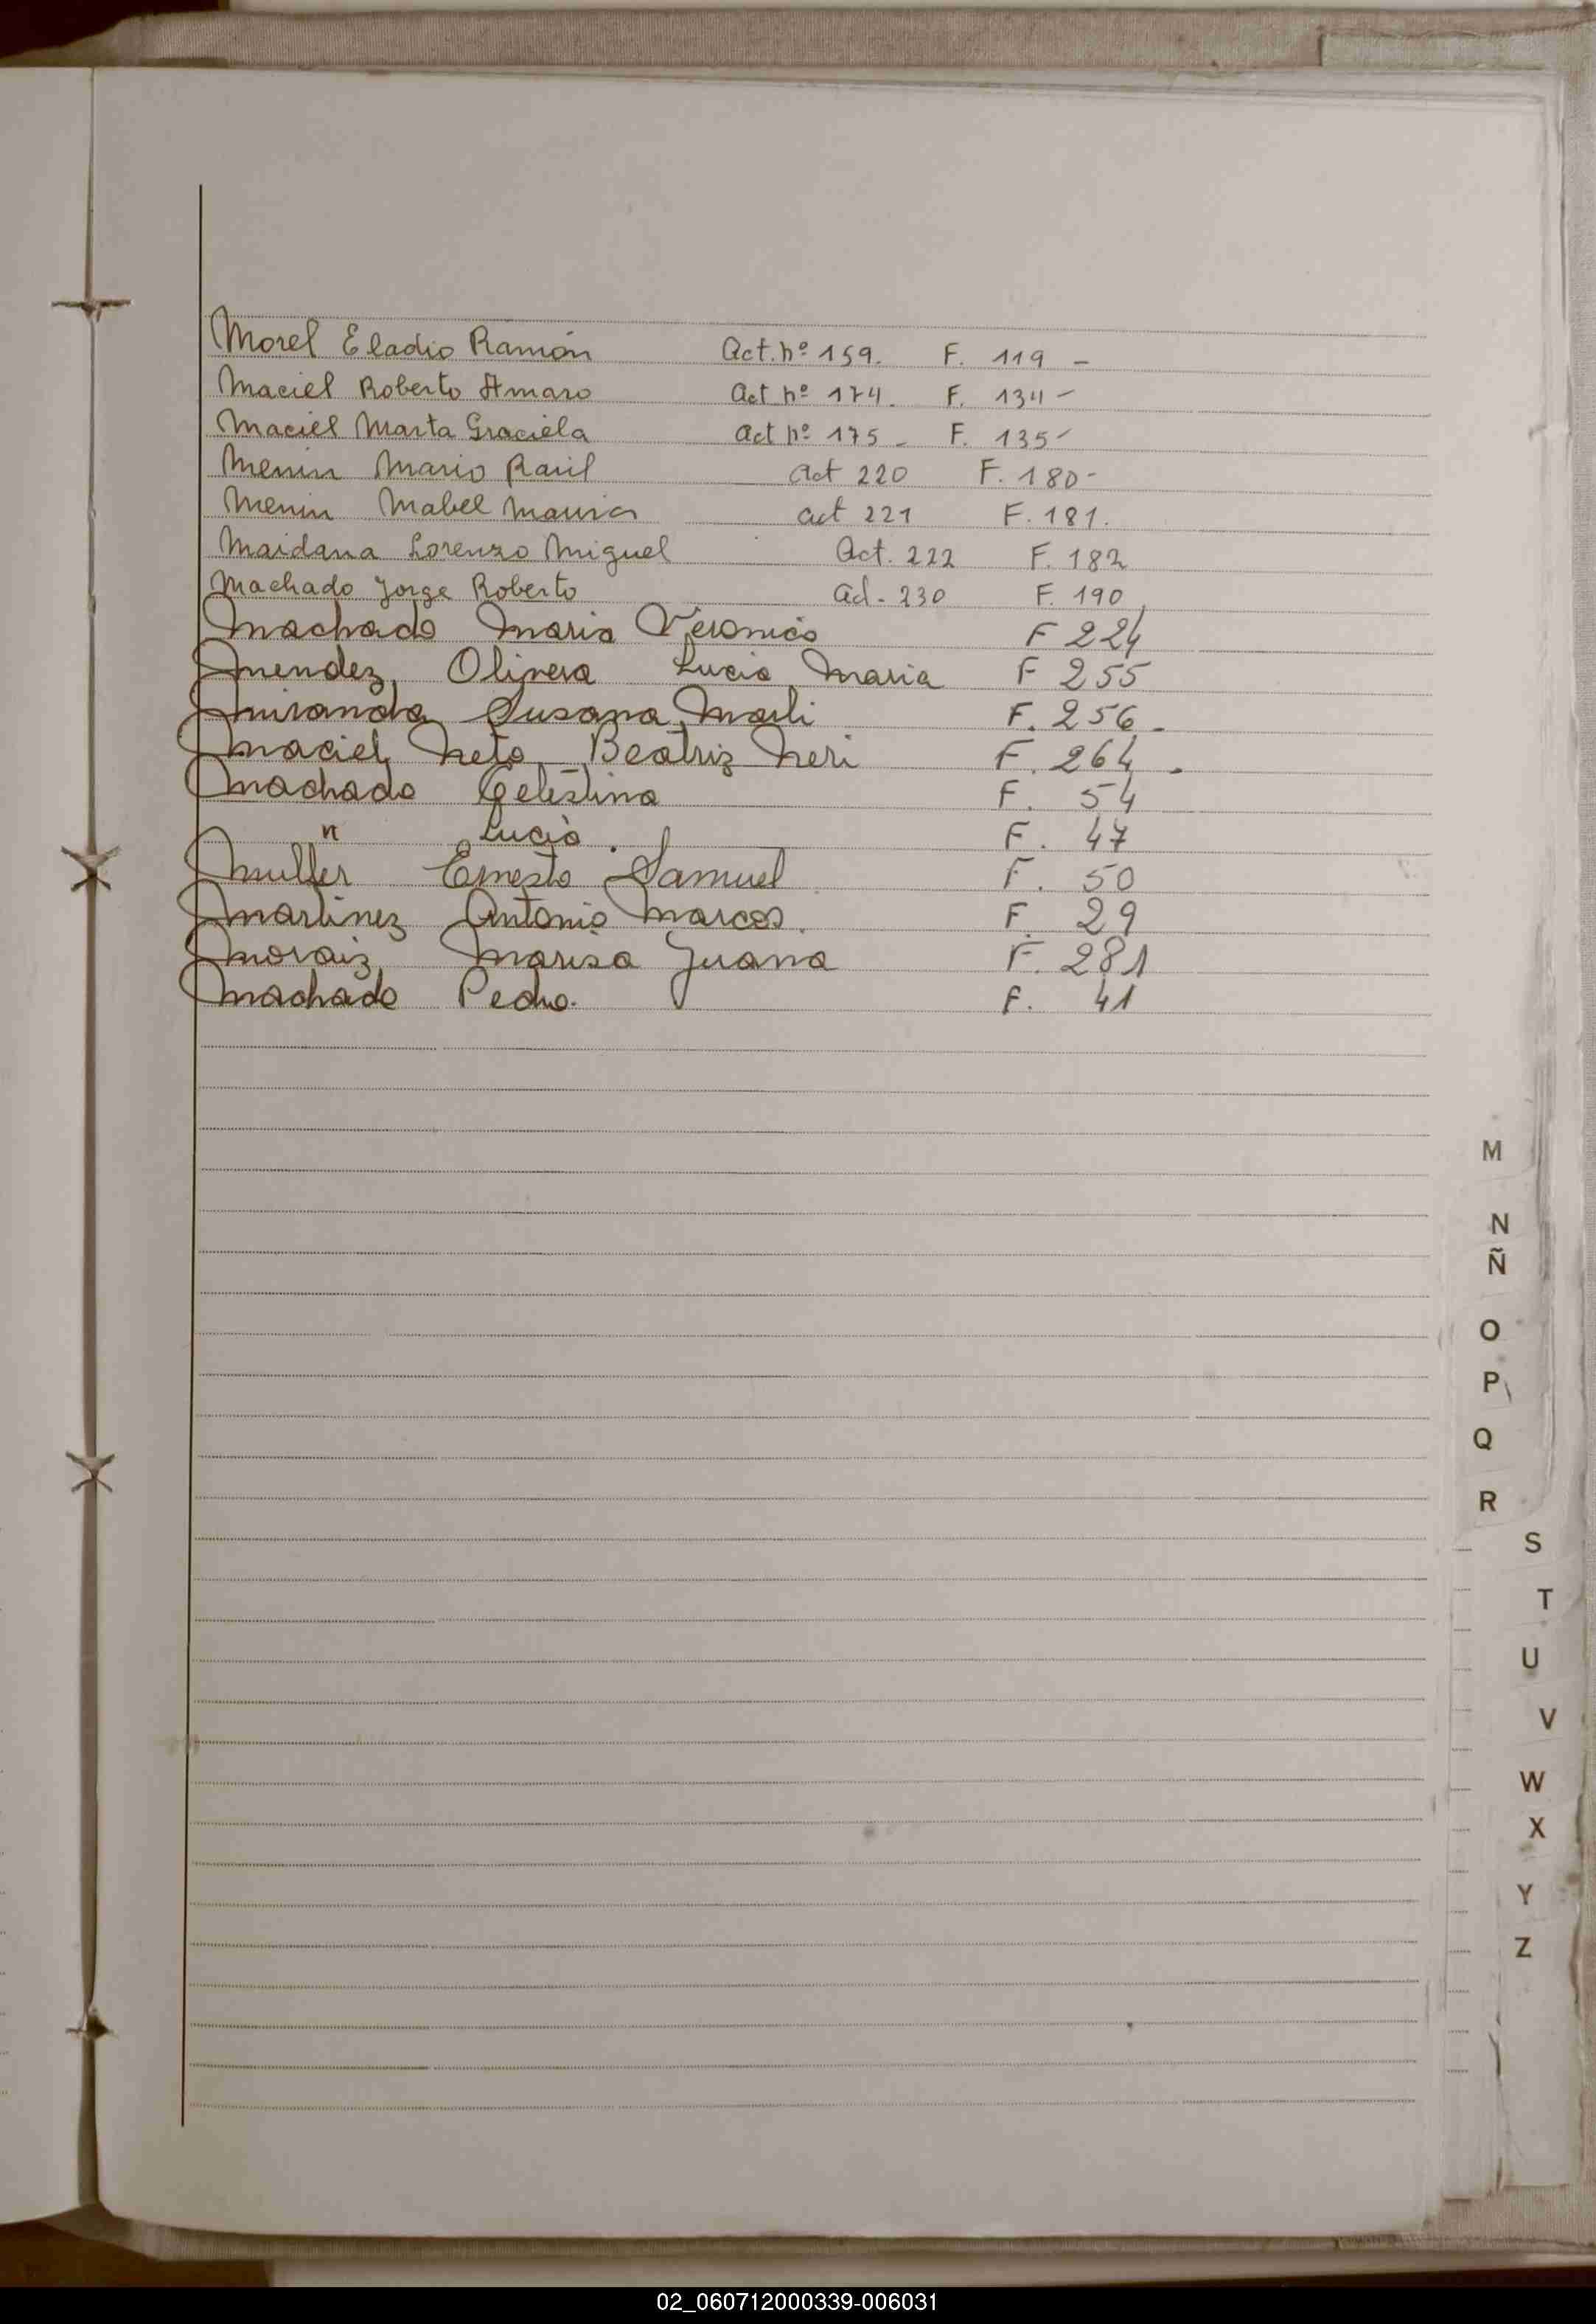 Morel Eladio Ramón Act. nº 159. F. 119 -
Maciel Roberto Amaro Act nº 174. F. 134 -
Maciel Marta Graciela Act nº 175 - F. 135 -
Menin Mario Raúl Act 220 F. 180 -
Menin Mabel Maria Act 221 F. 181.
Maidana Lorenzo Miguel Act. 222 F. 182
Machado Jorge Roberto Act. 230 F. 190
Machado Maria Veronica F 224
Mendez, Olivera Lucia Maria F 255
Miranda Susana Marli F. 256 -
Maciel Neto Beatriz Neri F. 264 -
Machado Celestina F. 54
" Lucia . F. 47
Muller Ernesto Samuel F. 50
Martinez Antonio Marcos. F. 29
Moraiz Marisa Juana F. 281
Machado Pedro. F. 41
M
N
Ñ
O
P
Q
R
S
T
U
V
W
X
Y
Z
02_060712000339-006031